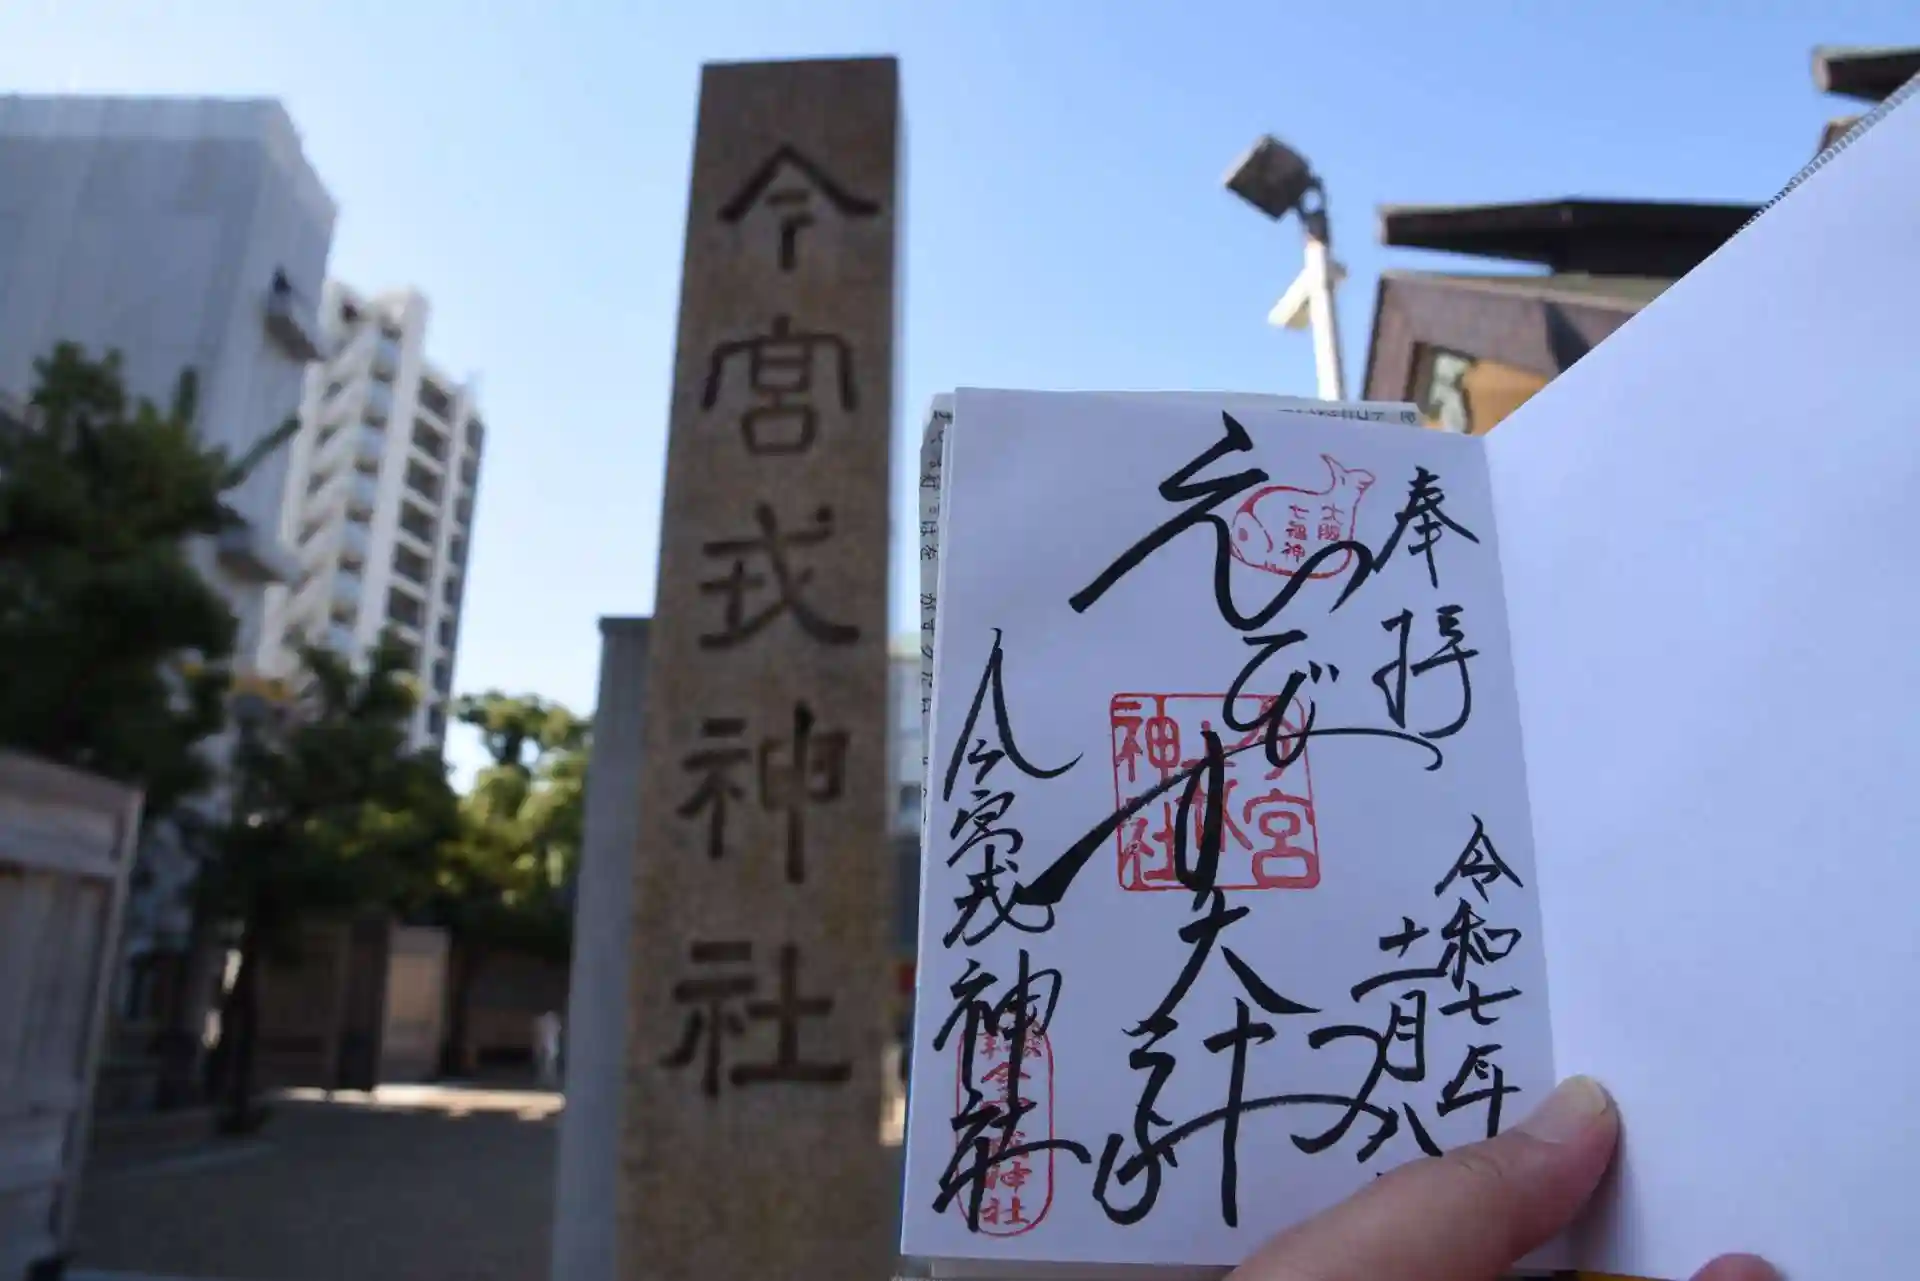 今宮戎神社
奉拝
大阪
七福神
えびす大神
令和七年
十一月八
今宮戎神社
今宮
戎
神社
今宮戎神社